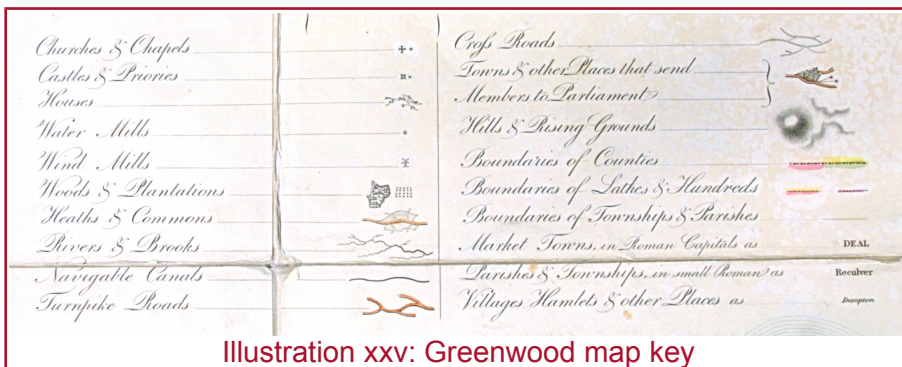 Churches & Chapels
Castles & Priories
Houses
Water Mills
Wind Mills
Woods & Plantations
Heaths & Commons
Rivers & Brooks
Navigable Canals
Turnpike Roads
Croſs Roads
Towns & other Places that send
Members to Parliament
Hills & Rising Grounds
Boundaries of Counties
Boundaries of Lathes & Hundreds
Boundaries of Townships & Parishes
Market Towns, in Roman Capitals as DEAL
Parishes & Townships, in small Roman as Reculver
Villages Hamlets & other Places as Dumpton
Illustration xxv: Greenwood map key